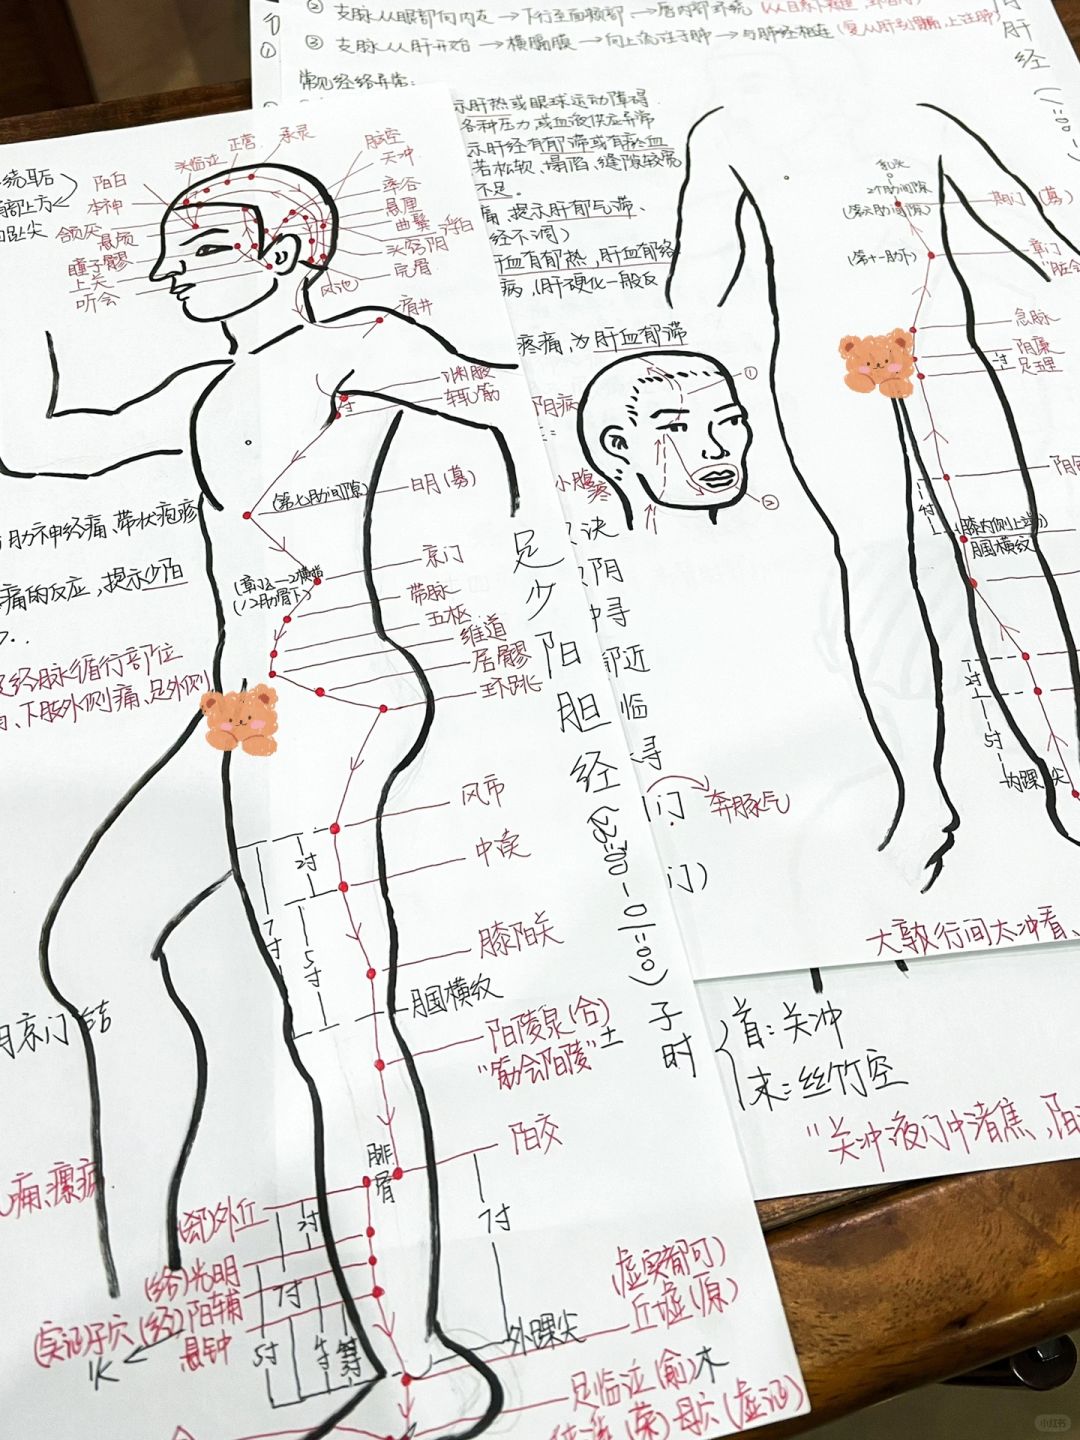 ② 支脉从眼部向内走→下行至面颊部→唇内部环绕
③ 支脉从肝开始→横膈膜→向上流注于肺→与肺经相连(复从肝别贯膈,上注肺)
常见经络异常:
示肝热或眼球运动障碍
各种压力或血液供应异常
示肝经有郁滞或有瘀血
若松软、塌陷、缝隙较宽
不足.
痛,提示肝郁气滞、
经不调)
血有郁热,肝血郁络
病,肝硬化一般反
疼痛,为肝血郁滞
阳病
小腹疼
肝
经
正营
承灵
脑空
天冲
头临泣
阳白
本神
颔厌
悬颅
瞳子髎
上关
听会
率谷
悬厘
曲鬓
浮白
头窍阴
完骨
风池
肩井
渊腋
辄筋
寸
(第七肋间隙)
日月(募)
京门
(章门
(12肋骨下)
带脉
五枢
维道
居髎
环跳
风市
中渎
2寸
7寸
5寸
膝阳关
腘横纹
阳陵泉(合)土
"筋会阳陵"
阳交
腓骨
7寸
(郄)外丘
(络)光明
(经)阳辅
悬钟
2寸
7寸
5寸
外踝尖
(虚实都可)
丘墟(原)
足临泣(俞)木
侠溪(荥)母穴(虚证)
(实证)子穴
火
足少阳胆经(23:00-01:00)子时
肋神经痛、带状疱疹
痛的反应,提示少阳
经脉循行部位
、下肢外侧痛、足外侧
京门结
痛,瘰疬
①
②
乳头
2个肋间隙
(第六肋间隙)
期门(募)
(第十一肋下)
章门
急脉
阴廉
足五里
膝内侧上
腘横纹
2寸
5寸
内踝尖
诀
阴
寻
近
临
寻
门
奔豚气
门)
大敦行间太冲看、
首:关冲
末:丝竹空
"关冲液门中渚焦,阳